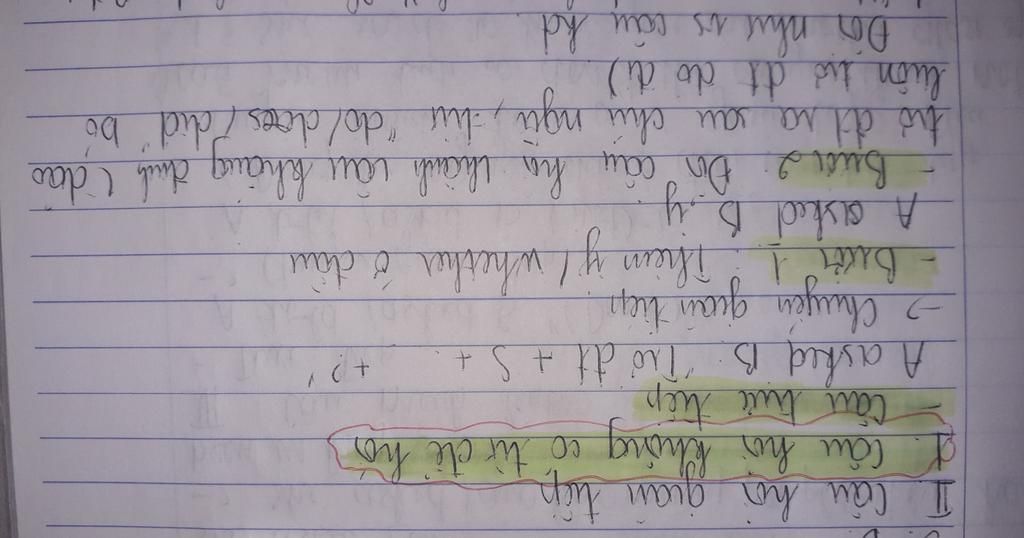 II Câu hỏi gián tiếp
1. Câu hỏi không có từ để hỏi
- Câu trực tiếp
A asked B: "Trợ đt + S + ... + ?"
-> Chuyển gián tiếp
- Bước 1: Thêm if / whether ở đầu
A asked B if
- Bước 2: Đổi câu hỏi thành câu khẳng định (đảo
trợ đt ra sau chủ ngữ, trừ "do/does/did bỏ
luôn trợ đt đó đi)
Đổi như vs câu kđ